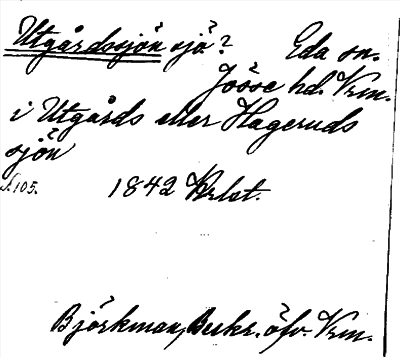 Utgårdssjön sjö? Eda sn.
Jösse hd. Vrm.
i Utgårds eller Hageruds
sjön
S. 105. 1842 Krlat.
Björkman, Beskr. öfv. Vrm.